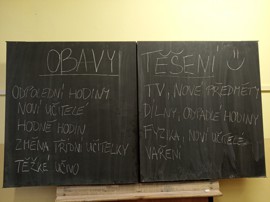 OBAVY
ODPOLEDNÍ HODINY
NOVÍ UČITELÉ
HODNĚ HODIN
ZMĚNA TŘÍDNÍ UČITELKY
TĚŽKÉ UČIVO
TĚŠENÍ
TV, NOVÉ PŘEDMĚTY
DÍLNY, ODPADLÉ HODINY
FYZIKA, NOVÍ UČITELÉ
VAŘENÍ